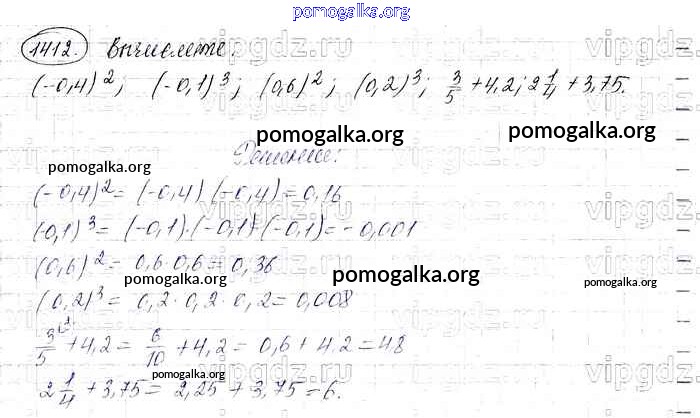 pomogalka.org
1412. Вычислите:
(-0,4)²; (-0,1)³; (0,6)²; (0,2)³; 3/5 + 4,2; 2 1/4 + 3,75.
pomogalka.org pomogalka.org
Решение:
pomogalka.org
(-0,4)² = (-0,4) (-0,4) = 0,16
(-0,1)³ = (-0,1)·(-0,1)·(-0,1) = -0,001
(0,6)² = 0,6·0,6 = 0,36
pomogalka.org pomogalka.org
(0,2)³ = 0,2·0,2·0,2 = 0,008
3/5 + 4,2 = 6/10 + 4,2 = 0,6 + 4,2 = 4,8
pomogalka.org
2 1/4 + 3,75 = 2,25 + 3,75 = 6.
pomogalka.org
vipgdz.ru